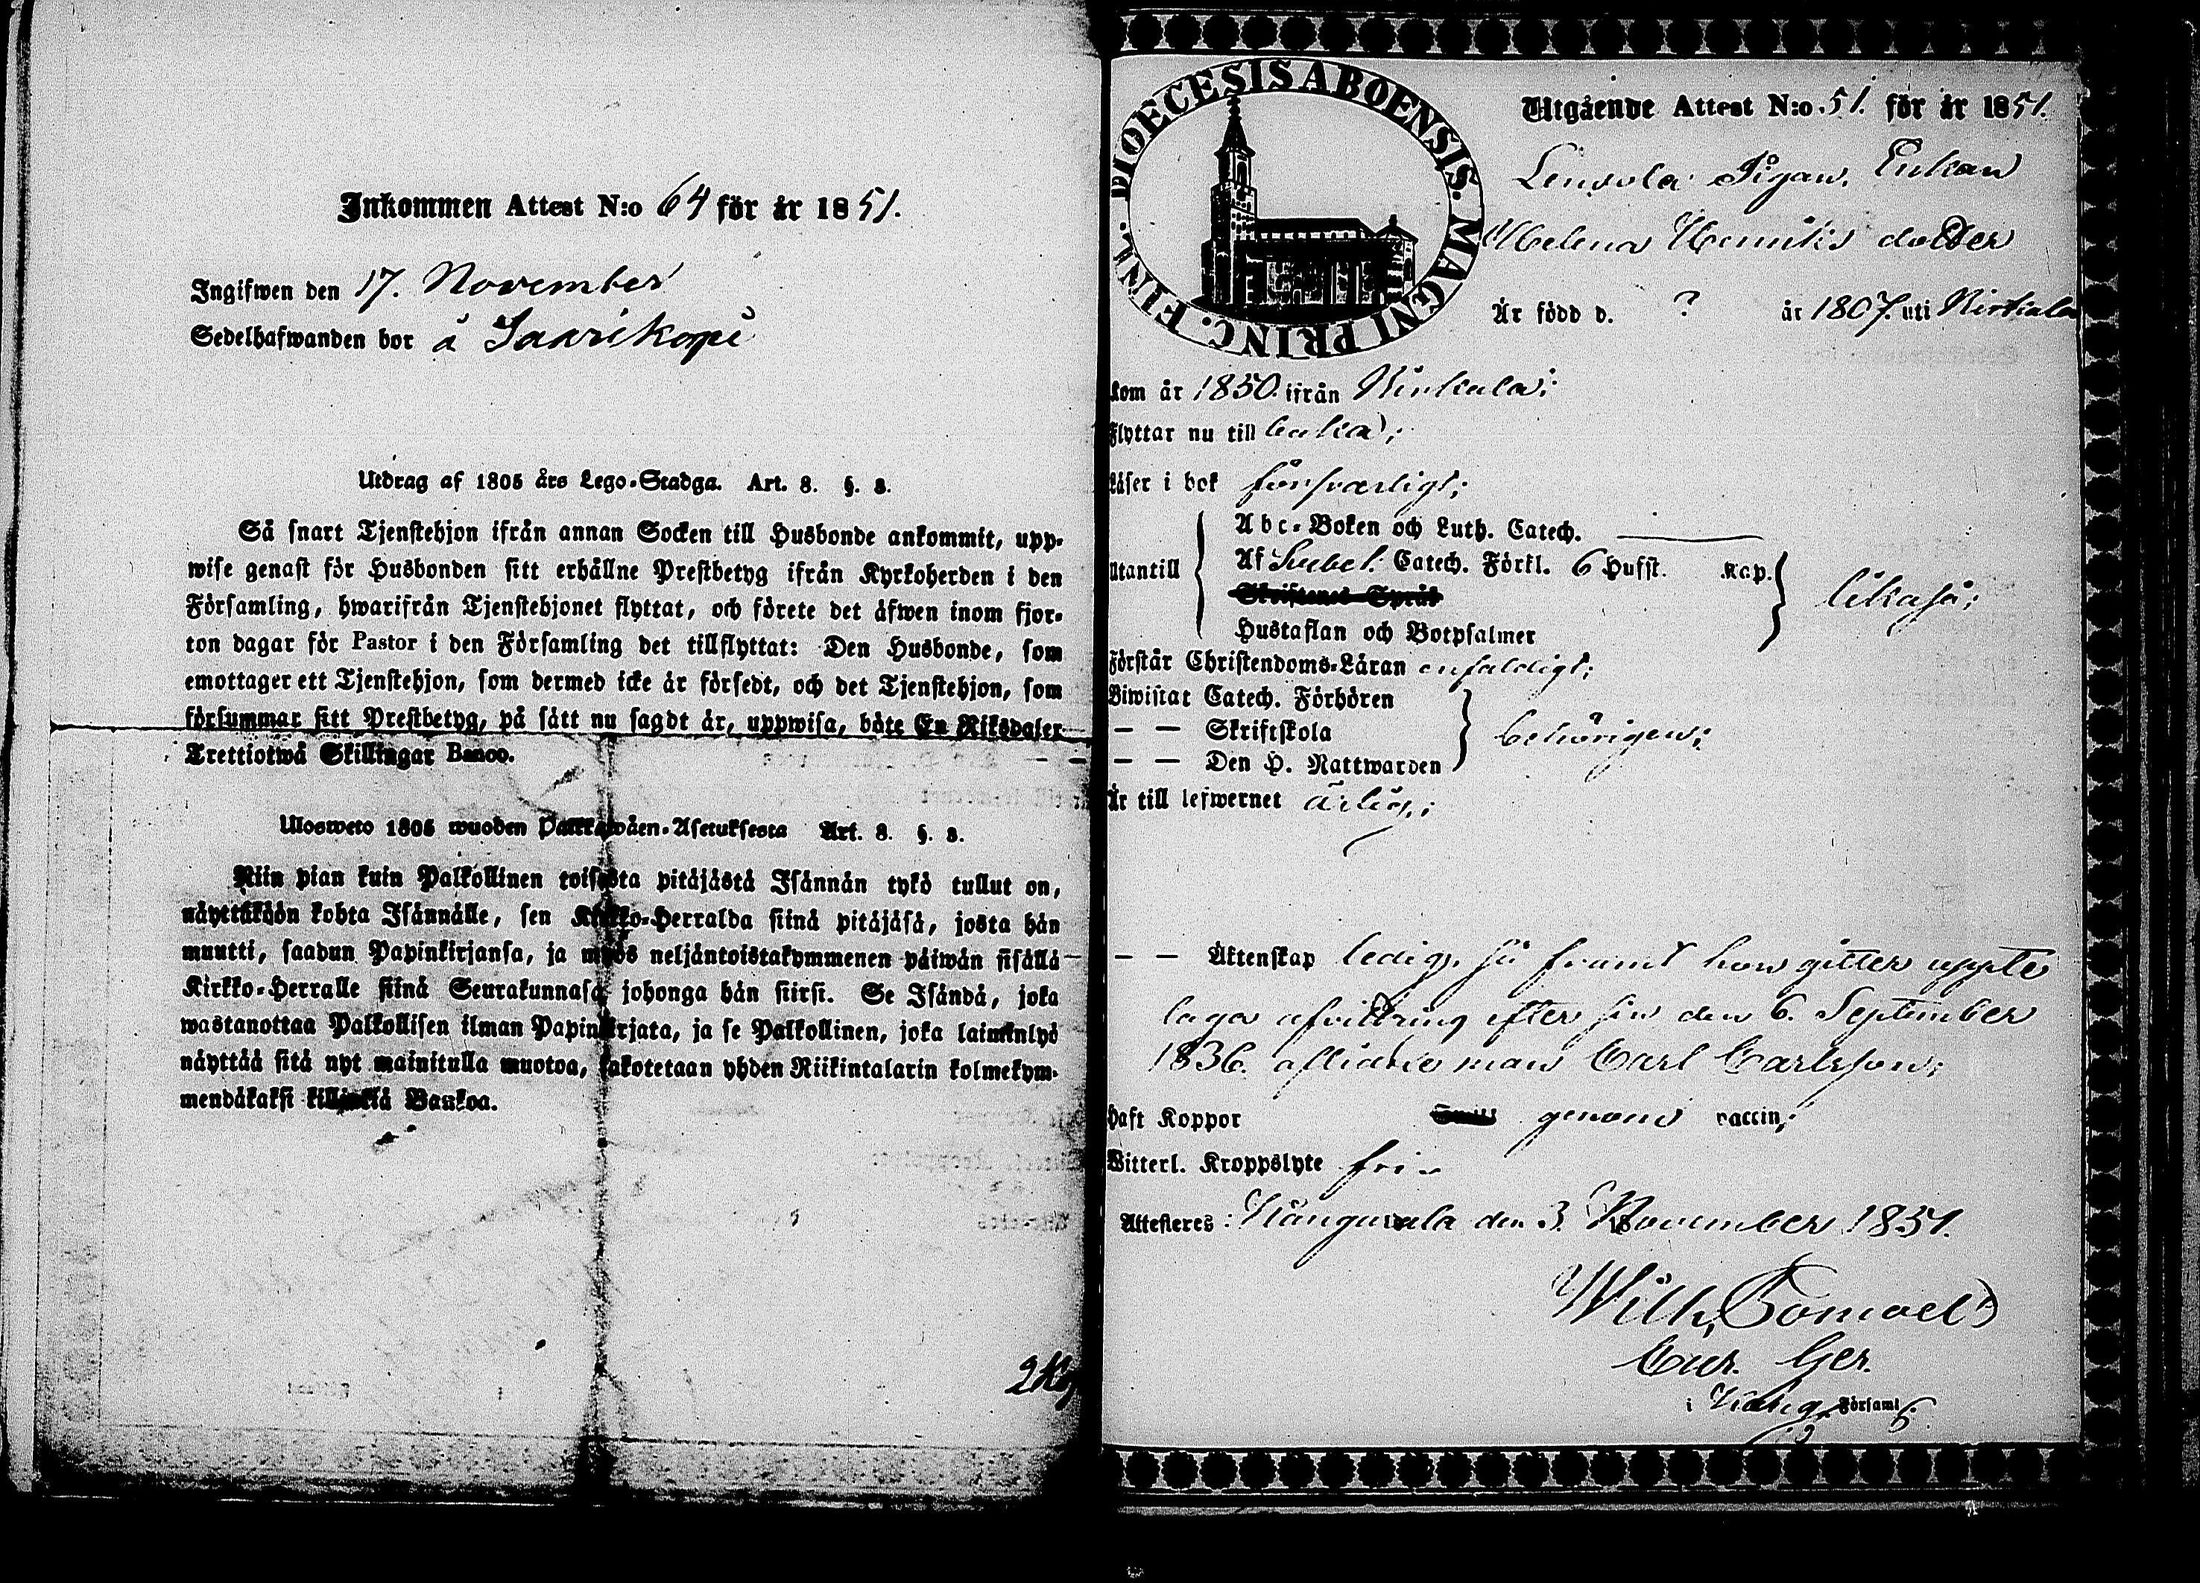 Inkommen Attest N:o 64 för år 1851.
Ingifwen den 17. November
Sedelhafwanden bor å Saarikopi
Utdrag af 1805 års Lego-Stadga. Art. 8. §. 8.
Så snart Tjenstehjon ifrån annan Socken till Husbonde ankommit, upp-
wise genast för Husbonden sitt erhållne Prestbetyg ifrån Kyrkoherden i den
Församling, hwarifrån Tjenstehjonet flyttat, och förete det äfwen inom fjor-
ton dagar för Pastor i den Församling det tillflyttat: Den Husbonde, som
emottager ett Tjenstehjon, som dermed icke är försedt, och det Tjenstehjon, som
försummar sitt Prestbetyg, på sätt nu sagdt är, uppwisa, böte En Riksdaler
Trettiotwå Skillingar Banco.
Ulosweto 1805 wuoden Palkkawäen-Asetuksesta Art. 8. §. 8.
Niin pian kuin Palkollinen toisesta pitäjästä Isännän tykö tullut on,
näyttäköön kohta Isännälle, sen Kirkko-Herralda siinä pitäjäsä, josta hän
muutti, saadun Papinkirjansa, ja myös neljäntoistakymmenen päiwän sisällä
Kirkko-Herralle siinä Seurakunnasa johonga hän siirsi. Se Isändä, joka
wastanottaa Palkollisen ilman Papinkirjata, ja se Palkollinen, joka laiminlyö
näyttää sitä nyt mainitulla muotoa, sakotetaan yhden Riikintalarin kolmekym-
mendäkaksi killinkiä Bankoa.
DIOECESIS ABOENSIS. MAGNI PRINC. FINL.
Utgående Attest N:o 51. för år 1851.
Pigan, Enkan
Helena Henriks dotter
Är född d. ? år 1807. uti Kirkala
kom år 1850. ifrån Kirkala;
Flyttar nu till baka;
Läser i bok försvarligt;
Abc-Boken och Luth. Catech.
Utantill Af Svebel. Catech. Förkl. 6 Hufst. Kap. likaså;
Skriftenes Språk
Hustaflan och Botpsalmer
Förstår Christendoms-Läran enfaldigt;
Biwistat Catech. Förhören
— — Skriftskola behörigen;
— — Den H. Nattwarden
Är till lefwernet ärlig;
— — Äktenskap ledig, så framt hon gitter uppte
laga afvittring efter sin den 6. September
1836. aflidne man Carl Carlsson;
Haft Koppor genom vaccin;
Witterl. Kroppslyte fri
Attesteres: Kangasala den 3. November 1851.
Wilh.
Cur. Ger.
i Kang. Församl.